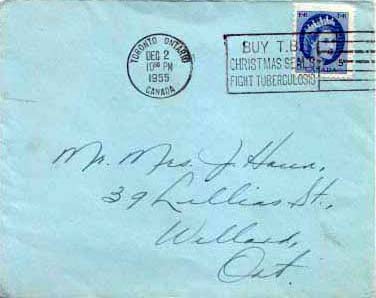 TORONTO ONTARIO
DEC 2
10 PM
1955
CANADA
BUY T.B.
CHRISTMAS SEALS
FIGHT TUBERCULOSIS
CANADA
5¢
Mr. Mrs. J.
39 Lillias St.,
Ont.